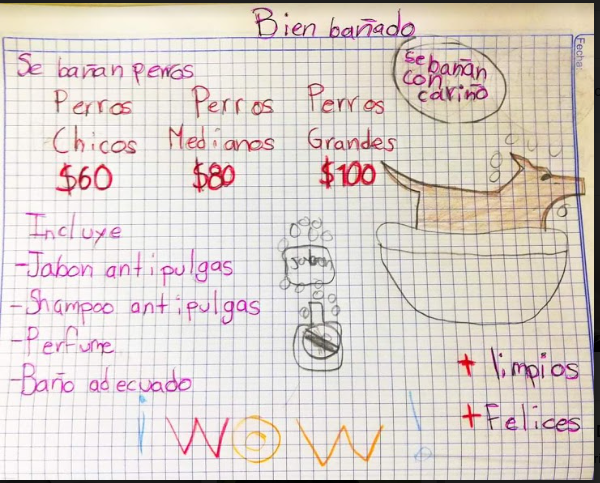 Bien bañado
Se bañan perros
se bañan
con
cariño
Perros Perros Perros
Chicos Medianos Grandes
$60 $80 $100
Incluye
-Jabon antipulgas
-Shampoo antipulgas
-Perfume
-Baño adecuado
Jabon
+ limpios
+ Felices
¡WOW!
Fecha: